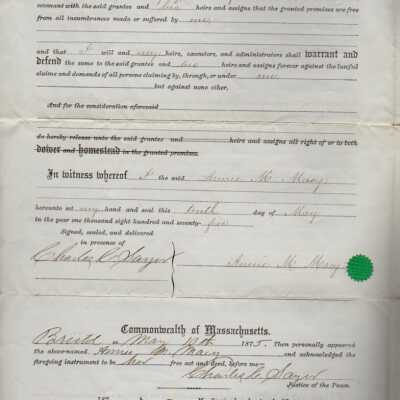 covenant with the said grantee and his heirs and assigns that the granted premises are free
from all incumbrances made or suffered by me
and that I will and my heirs, executors, and administrators shall warrant and
defend the same to the said grantee and his heirs and assigns forever against the lawful
claims and demands of all persons claiming by, through, or under me
but against none other.
And for the consideration aforesaid
do hereby release unto the said grantee and heirs and assigns all right of or to both
dower and homestead in the granted premises.
In witness whereof I the said Annie M. Macy
hereunto set my hand and seal this tenth day of May
in the year one thousand eight hundred and seventy five
Signed, sealed, and delivered
in presence of
Charles C. Sayer Annie M. Macy
Commonwealth of Massachusetts.
Bristol ss May 10th 1875. Then personally appeared
the above-named Annie M. Macy and acknowledged the
foregoing instrument to be her free act and deed, before me—
Charles C. Sayer
Justice of the Peace.
187